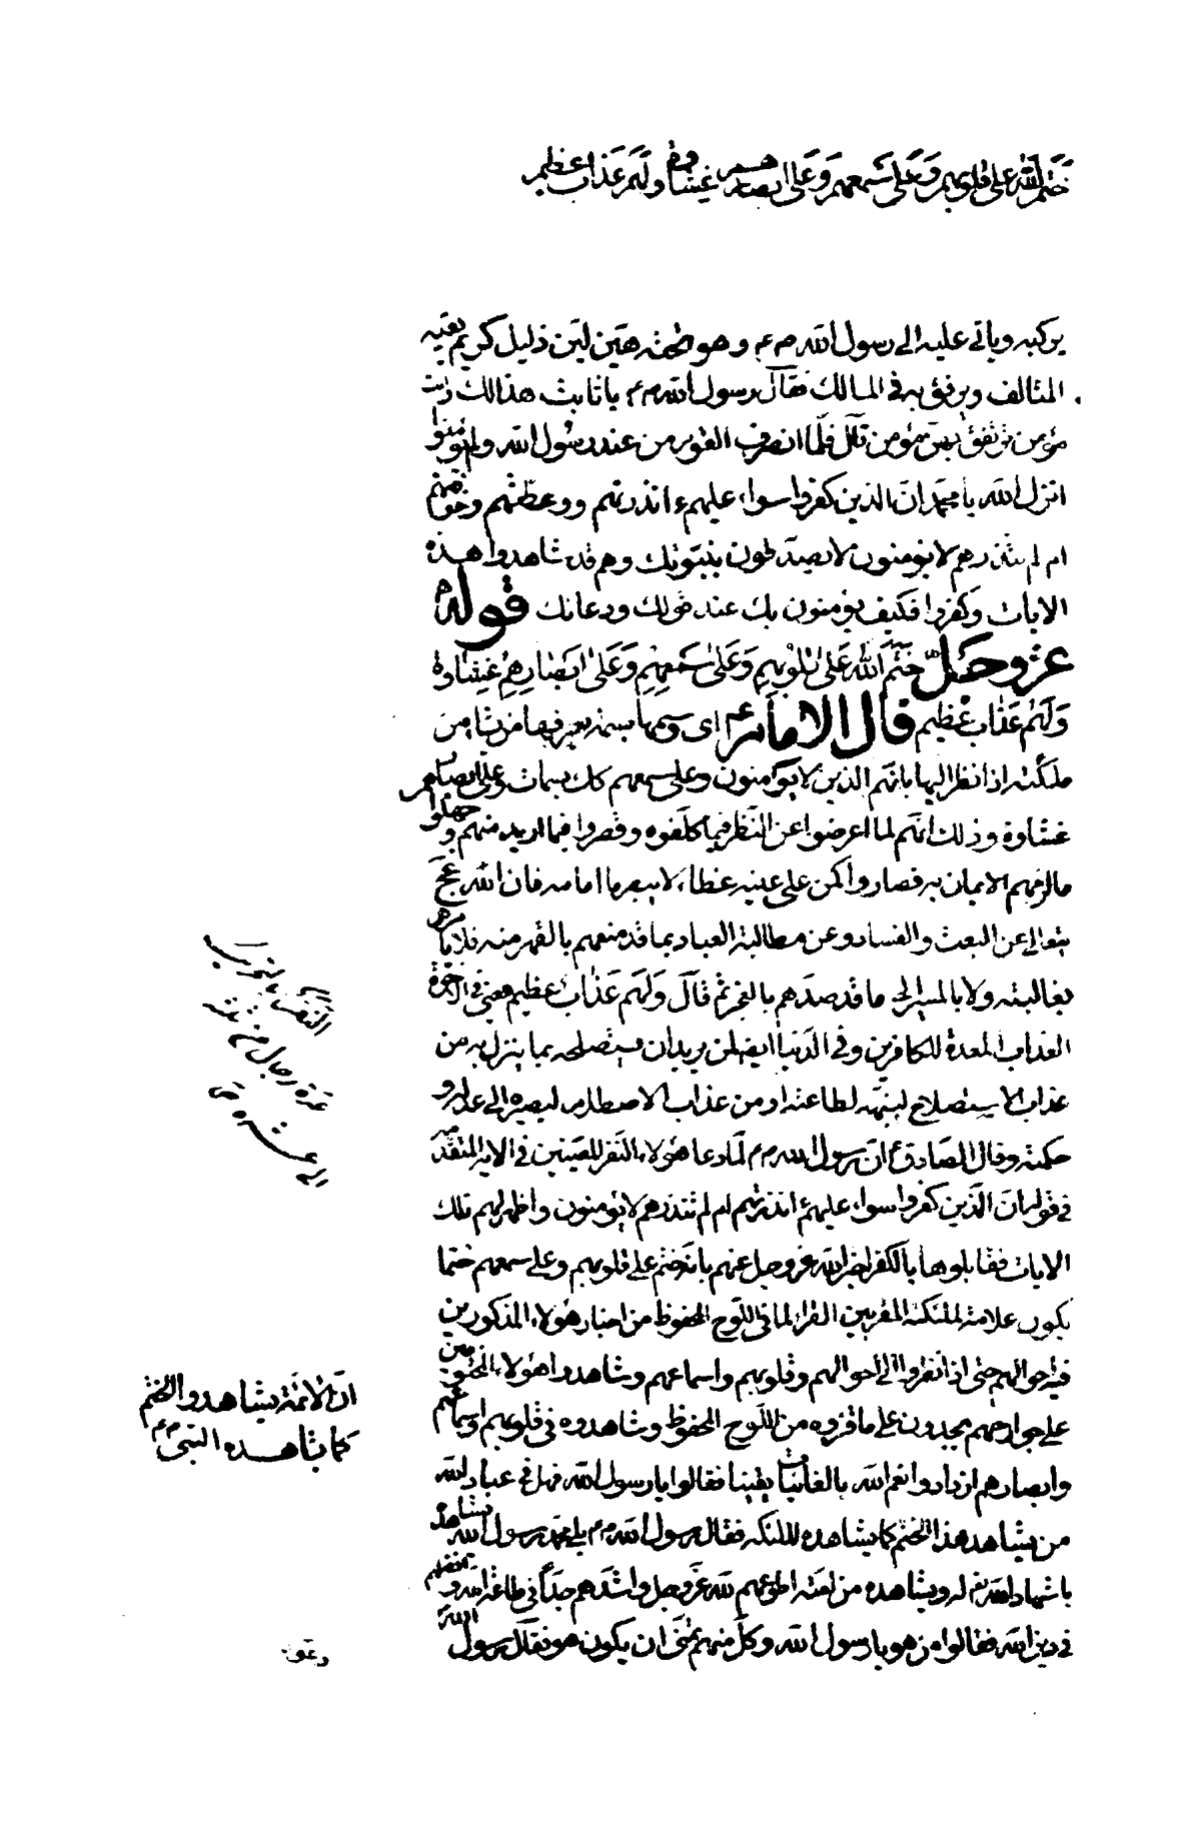 ختم الله على قلوبهم وعلى سمعهم وعلى ابصارهم غشاوة ولهم عذاب عظيم
يركبه وياتى عليه الى رسول الله ص ع وهو تحته هين لين ذليل كريم يقيه
المتالف ويرفق به فى المسالك فقال رسول الله ص ع يا ثابت هذا لك وانت
مؤمن مرتفق بمؤمن قال فلما انصرف القوم من عند رسول الله ولم يؤمنوا
انزل الله يا محمد ان الذين كفروا سواء عليهم ءانذرتهم ووعظتهم وخوفتهم
ام لم تنذرهم لا يؤمنون لا يصدقون بنبوتك وهم قد شاهدوا هذه
الايات وكفروا فكيف يؤمنون بك عند قولك ودعائك قوله
عز وجل ختم الله على قلوبهم وعلى سمعهم وعلى ابصارهم غشاوة
ولهم عذاب عظيم قال الامام ع اى وسمها بسمة يعرفها من يشاء من
ملئكته اذا نظر اليها بانهم الذين لا يؤمنون وعلى سمعهم كذلك بسمات وعلى ابصارهم
غشاوة وذلك انهم لما اعرضوا عن النظر فيما كلفوه وقصروا فيما اريد منهم وجهلوا
ما لزمهم الايمان به فصاروا كمن على عينيه غطاء لا يبصر ما امامه فان الله عز وجل
يتعالى عن العبث والفساد وعن مطالبة العباد بما قد منعهم بالقهر منه فلا يامرهم
بمغالبته ولا بالمسير الى ما قد صدهم بالعجز ثم قال ولهم عذاب عظيم يعنى فى الاخرة
العذاب المعدة للكافرين وفى الدنيا ايضا لمن يريد ان يستصلحه بما ينزل به من
عذاب الاستصلاح لينبهه لطاعته او من عذاب الاصطلام ليصيره الى عدله و
حكمته وقال الصادق ع ان رسول الله ص ع لما دعا هؤلاء النفر المعينين فى الاية المتقدمة
فى قوله ان الذين كفروا سواء عليهم ءانذرتهم ام لم تنذرهم لا يؤمنون واظهر لهم تلك
الايات فقابلوها بالكفر اخبر الله عز وجل عنهم بانه ختم على قلوبهم وعلى سمعهم ختما
يكون علامة لملئكته المقربين القراء لما فى اللوح المحفوظ من اخبار هؤلاء المذكورين
فيه احوالهم حتى اذا نظروا الى احوالهم وقلوبهم واسماعهم وشاهدوا هؤلاء المختومين
على جوارحهم يجدون على ما قرؤه من اللوح المحفوظ وشاهدوه فى قلوبهم واسماعهم
وابصارهم ازدادوا بعلم الله بالغائبات يقينا فقالوا يا رسول الله فهل فى عباد الله
من يشاهد هذا الختم كما يشاهده الملئكة فقال رسول الله ص ع بلى محمد رسول الله يشاهده
باشهاد الله تع له ويشاهده من امته اطوعهم لله عز وجل واشدهم جدا فى طاعة الله وافضلهم
فى دين الله فقالوا من هو يا رسول الله وكل منهم تمنى ان يكون هو فقال رسول الله
ان الائمة يشاهدوا الختم
كما يشاهده النبى ص ع